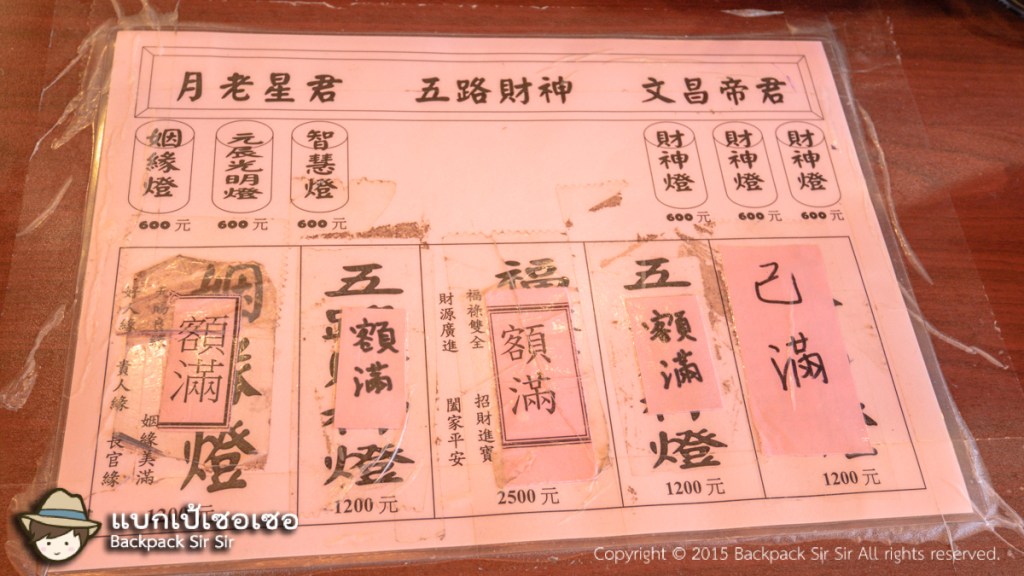 月老星君 五路財神 文昌帝君
姻緣燈
600元
元辰光明燈
600元
智慧燈
600元
財神燈
600元
財神燈
600元
財神燈
600元
好人緣
貴人緣
姻緣美滿
長官緣
額滿
燈
五
額滿
燈
1200元
福祿雙全
財源廣進
招財進寶
闔家平安
福
額滿
2500元
五
額滿
燈
1200元
己滿
1200元
แบกเป้เซอเซอ
Backpack Sir Sir
Copyright © 2015 Backpack Sir Sir All rights reserved.